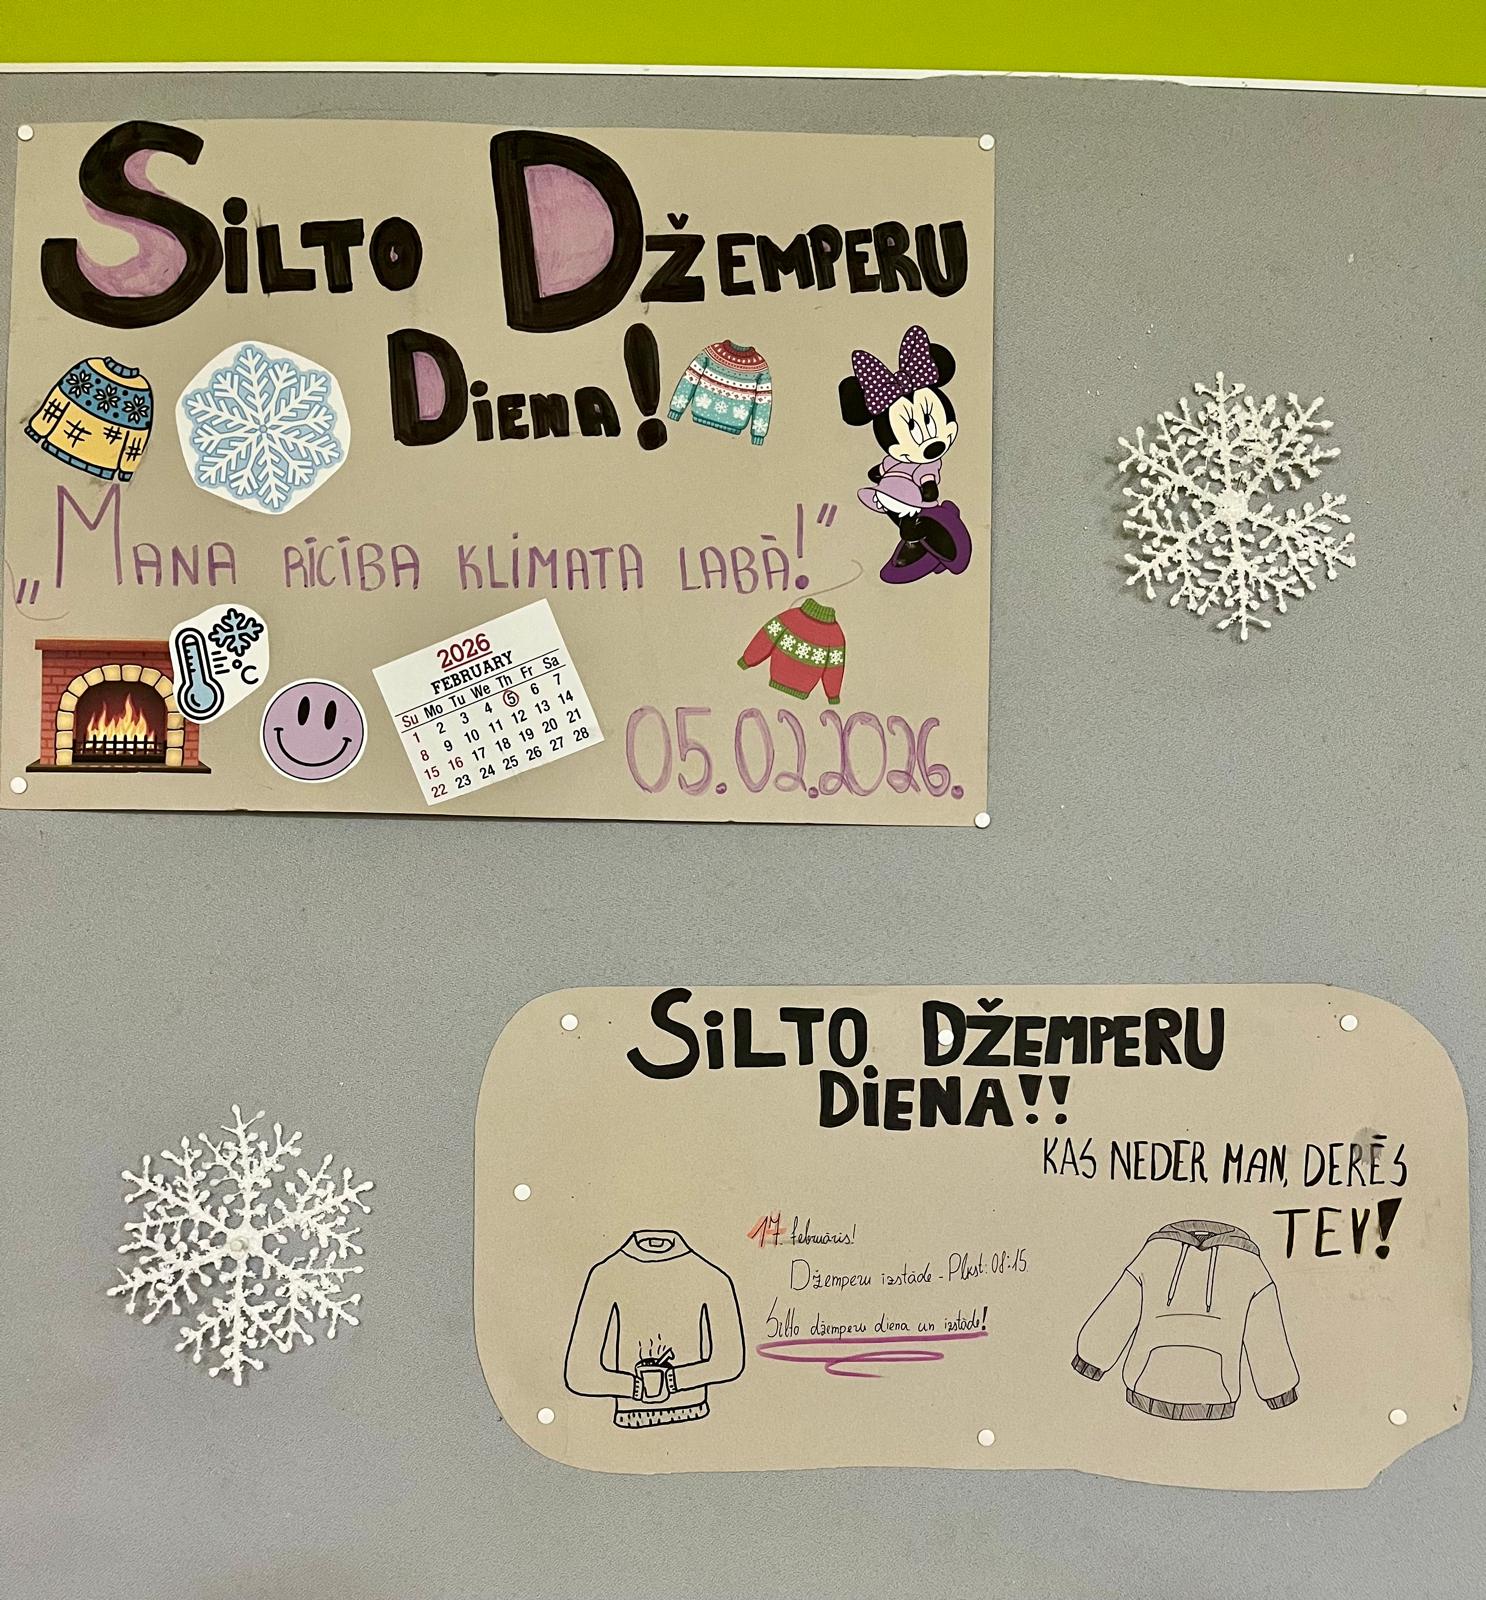 SILTO DŽEMPERU
DIENA!
„MANA RĪCĪBA KLIMATA LABĀ!"
°C
2026
FEBRUARY
Su Mo Tu We Th Fr Sa
1 2 3 4 5 6 7
8 9 10 11 12 13 14
15 16 17 18 19 20 21
22 23 24 25 26 27 28
05.02.2026.
SILTO DŽEMPERU
DIENA!!
KAS NEDER MAN, DERĒS
TEV!
17. februāris!
Džemperu izstāde - Plkst: 08:15
Silto džemperu diena un izstāde!